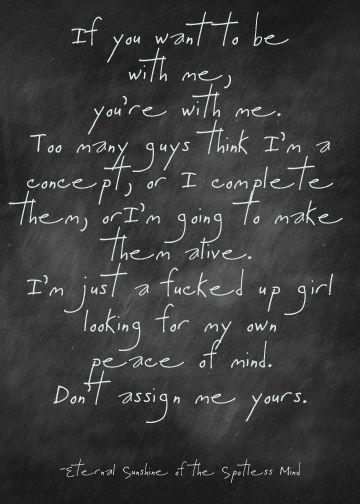 If you want to be
with me,
you're with me.
Too many guys think I'm a
concept, or I complete
them, or I'm going to make
them alive.
I'm just a fucked up girl
looking for my own
peace of mind.
Don't assign me yours.
-Eternal Sunshine of the Spotless Mind